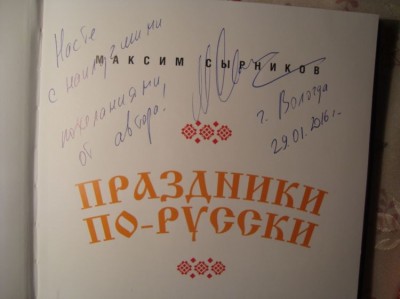 Насте
с наилучшими
пожеланиями
от автора!
МАКСИМ СЫРНИКОВ
г. Вологда
29.01.2016 г.
ПРАЗДНИКИ
ПО-РУССКИ